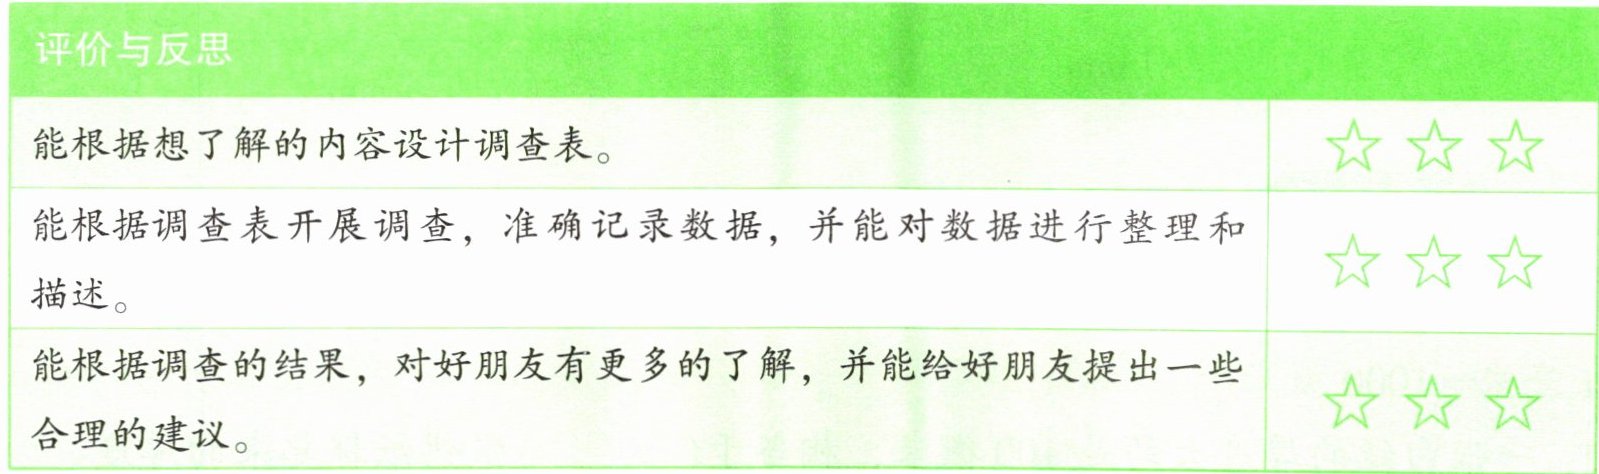 评价与反思
能根据想了解的内容设计调查表。
☆ ☆ ☆
能根据调查表开展调查，准确记录数据，并能对数据进行整理和
描述。
☆ ☆ ☆
能根据调查的结果，对好朋友有更多的了解，并能给好朋友提出一些
合理的建议。
☆ ☆ ☆